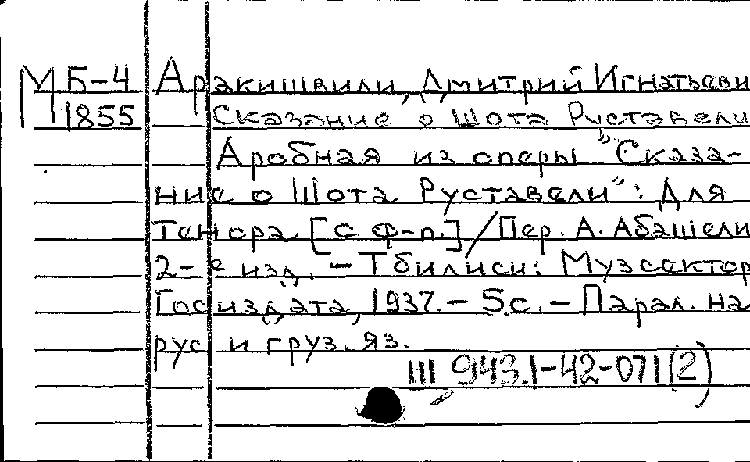 М Б-4 Аракишвили, Дмитрий Игнатьеви
1855 Сказание о Шота Руставели
Аробная из оперы "Сказа-
ние о Шота Руставели": Для
тенора [с ф-п.] / Пер. А. Абашели
2-е изд. - Тбилиси: Музсектор
Госиздата, 1937. - 5с. - Парал. на
рус. и груз. яз.
III 943.1-42-071(2)